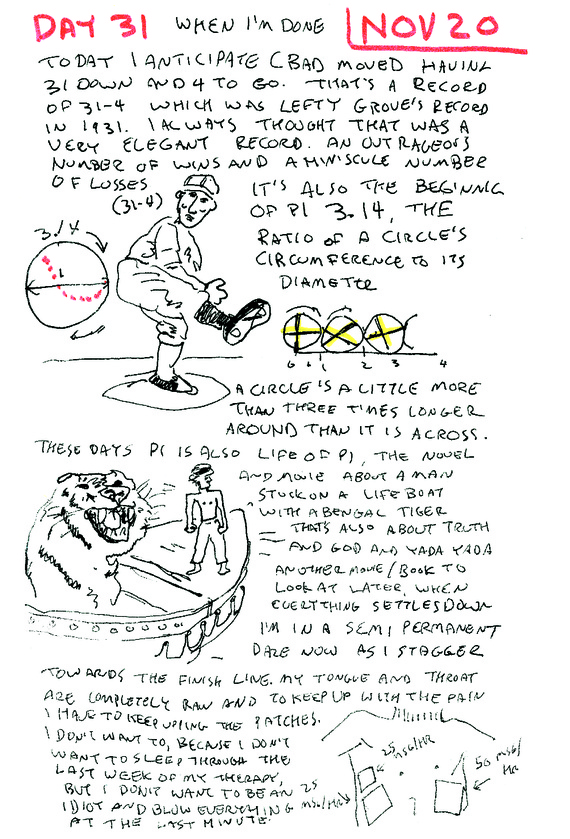 DAY 31 WHEN I'M DONE NOV 20
TODAY I ANTICIPATE CBAD MOVED HAVING
31 DOWN AND 4 TO GO. THAT'S A RECORD
OF 31-4 WHICH WAS LEFTY GROVE'S RECORD
IN 1931. I ALWAYS THOUGHT THAT WAS A
VERY ELEGANT RECORD. AN OUTRAGEOUS
NUMBER OF WINS AND A MINISCULE NUMBER
OF LOSSES
(31-4)
IT'S ALSO THE BEGINNING
OF PI 3.14, THE
RATIO OF A CIRCLE'S
CIRCUMFERENCE TO ITS
DIAMETER
3.14
1
0 1 2 3 4
A CIRCLE IS A LITTLE MORE
THAN THREE TIMES LONGER
AROUND THAN IT IS ACROSS.
THESE DAYS PI IS ALSO LIFE OF PI, THE NOVEL
AND MOVIE ABOUT A MAN
STUCK ON A LIFE BOAT
WITH A BENGAL TIGER
THAT'S ALSO ABOUT TRUTH
AND GOD AND YADA YADA
ANOTHER MOVIE/BOOK TO
LOOK AT LATER, WHEN
EVERYTHING SETTLES DOWN
I'M IN A SEMI PERMANENT
DAZE NOW AS I STAGGER
TOWARDS THE FINISH LINE. MY TONGUE AND THROAT
ARE COMPLETELY RAW AND TO KEEP UP WITH THE PAIN
I HAVE TO KEEP UPING THE PATCHES.
I DON'T WANT TO, BECAUSE I DON'T
WANT TO SLEEP THROUGH THE
LAST WEEK OF MY THERAPY,
BUT I DON'T WANT TO BE AN
IDIOT AND BLOW EVERYTHING
AT THE LAST MINUTE.
25 MSG/HR
50 MSG/
HR
25
MSG/HR